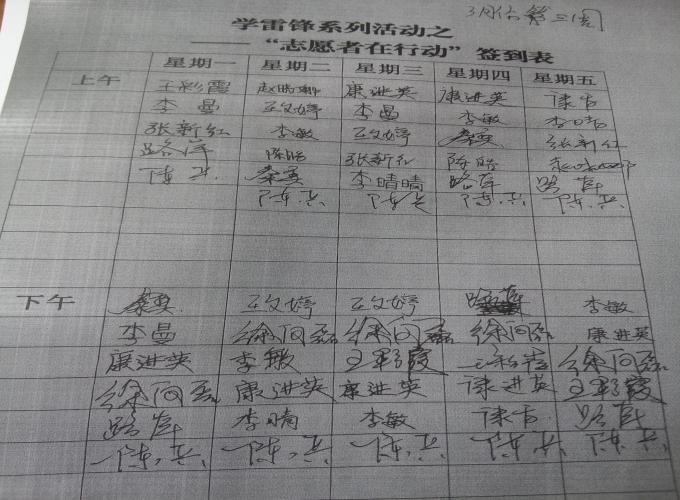 3月份第三周
学雷锋系列活动之
——“志愿者在行动”签到表
星期一 星期二 星期三 星期四 星期五
上午 王彩霞 康进英 康进英
李曼 王文婷 李曼 李敏 李晴
张新红 李敏 王文婷 秦英 张新红
路军 陈皓 张新红 陈皓
陈兵 秦英 李晴晴 路军 路军
陈兵 陈兵 陈兵 陈兵
下午 秦英 王文婷 王文婷 李敏
李曼 徐向磊 徐向磊 徐向磊 康进英
康进英 李敏 王彩霞 王彩霞 徐向磊
徐向磊 康进英 康进英 康进英 王彩霞
路军 李晴 李敏 路军
陈兵 陈兵 陈兵 陈兵 陈兵